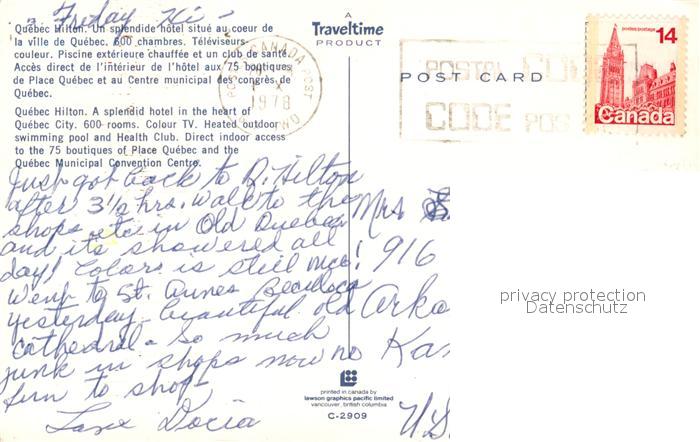 Friday Hi-
Québec Hilton. Un splendide hôtel situé au coeur de
la ville de Québec. 600 chambres. Téléviseurs-
couleur. Piscine extérieure chauffée et un club de santé.
Accès direct de l'intérieur de l'hôtel aux 75 boutiques
de Place Québec et au Centre municipal des congrès de
Québec.
Québec Hilton. A splendid hotel in the heart of
Québec City. 600 rooms. Colour TV. Heated outdoor
swimming pool and Health Club. Direct indoor access
to the 75 boutiques of Place Québec and the
Québec Municipal Convention Centre.
Just got back to Q. Hilton
after 3½ hrs. walk to the
shops etc in Old Quebec
and it's showered all
day! Color is still nice!
Went to St. Annes
yesterday - beautiful old
cathedral - So much
junk in shops now no
fun to shop.
Love Docia
A
Traveltime
PRODUCT
POST CARD
CANADA POST
1978
POSTAL CODE
CODE POS
postes postage
14
Canada
Mrs
916
Arka
Kan
U.S
privacy protection
Datenschutz
printed in canada by
lawson graphics pacific limited
vancouver, british columbia
C-2909